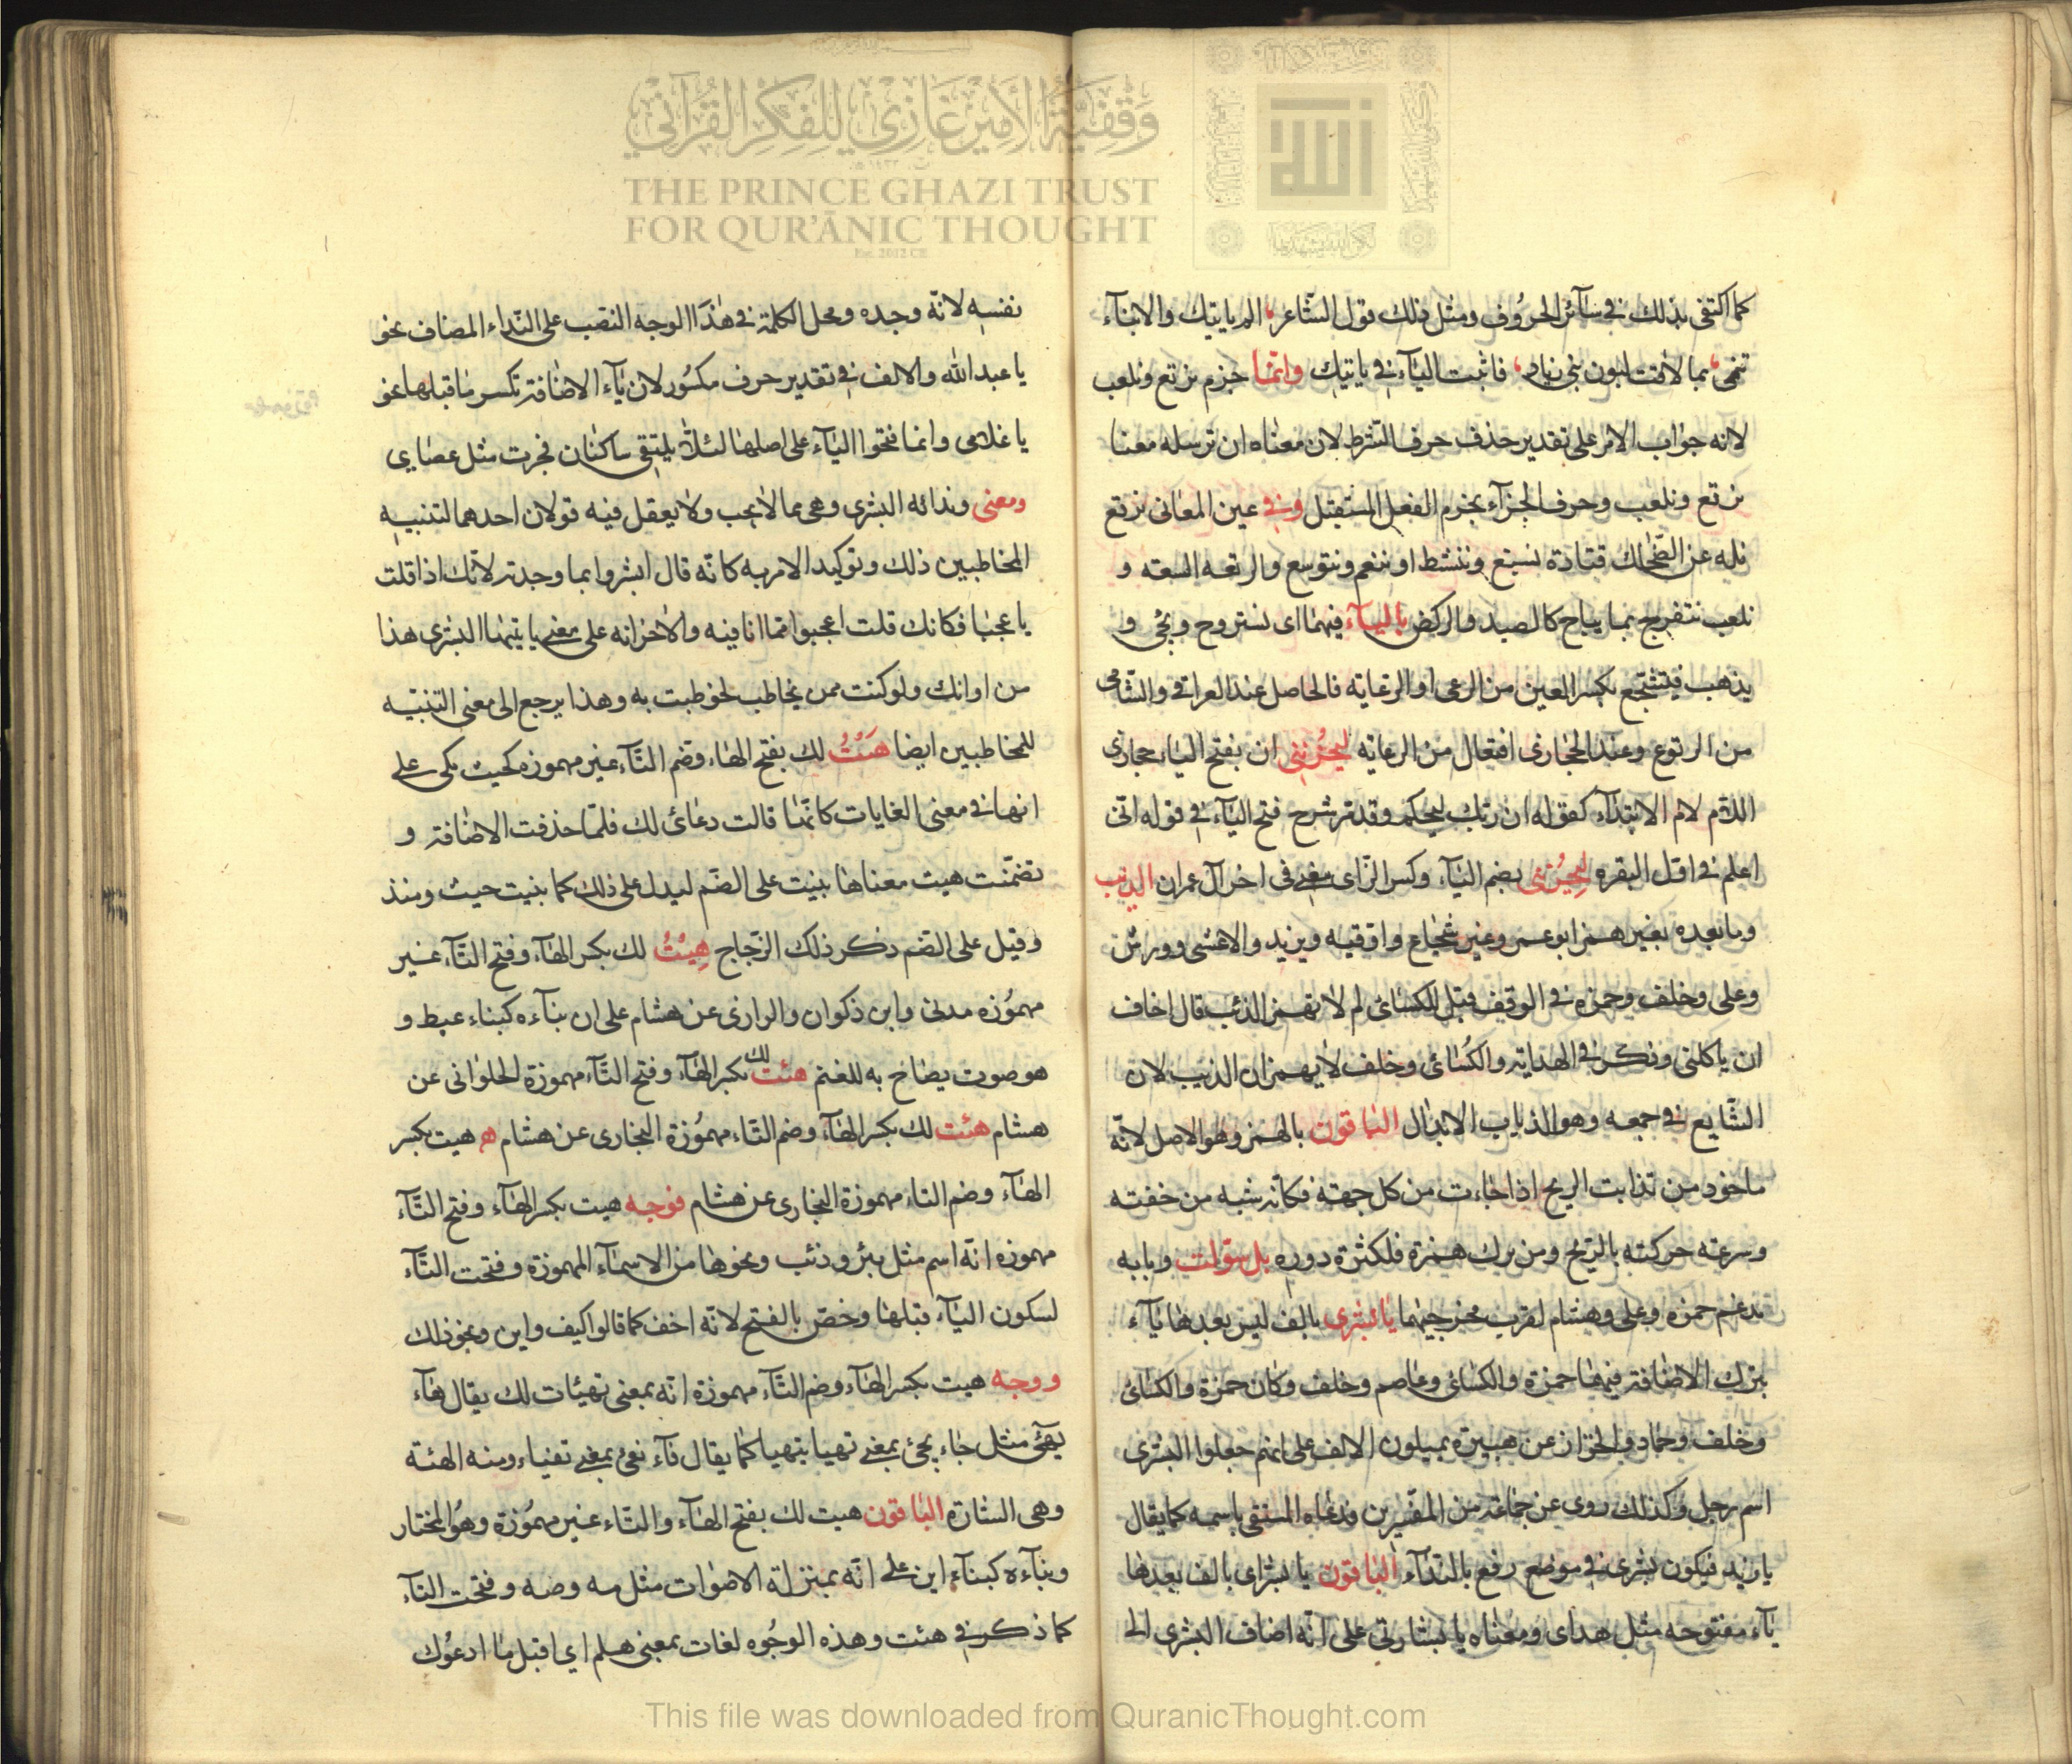 كما اكتفى بذلك في سآئر الحروف ومثل ذلك قول الشاعر الم ياتيك والانبآء
تنمى بما لاقت لبون بني زياد فاثبت اليآء في ياتيك وانما جزم نرتع ونلعب
لانه جواب الامر على تقدير حذف حرف الشرط لان معناه ان ترسله معنا
نرتع ونلعب وحرف الجزآء يجزم الفعل المستقبل وفي عين المعاني نرتع
نله عن الضحاك قتادة نسبع وننشط او ننعم ونتوسع والرتعه السعه و
نلعب نتفرج بما يباح كالصيد والركض باليآء فيهما اى نستروح و و
يذهب فيتشجع بكسر العين من الرعى او الرعايه فالحاصل عند العراقي والشامى
من الرتوع وعند الحجازى افتعال من الرعايه ليحزننى ان بفتح اليآء حجازى
اللام لام الابتدآء كقوله ان ربك ليحكم وقد شرح فتح اليآء في قوله انى
اعلم في اول البقره ليحزننى بضم اليآء وكسر الزاى مضى فى اخر آل عمران الذيب
وما بعده بغير همز ابو عمرو غير شجاع واوقيه ويزيد والاعشى وورش
وعلى وخلف وحمزه في الوقف قيل للكسائ لم لا تهمز الذئب قال اخاف
ان ياكلنى وذكر في الهدايه والكسائ وخلف لا يهمزان الذيب لان
الشايع في جمعه وهو الذياب الابدال الباقون بالهمز وهو الاصل لانه
ماخوذ من تذابت الريح اذا جاءت من كل جهة فكانه شبه من خفته
وسرعة حركته بالريح ومن ترك همزة فلكثرة دوره بل سولت وبابه
يدغم حمزه وعلى وهشام لقرب مخرجيهما يا بشرى بالف ليس بعدها يآء
بترك الاضافة فيها حمزة والكسائى وعاصم وخلف وكان حمزة والكسائ
وخلف وحماد والخزاز عن هبيرة يميلون الالف على انهم جعلوا البشرى
اسم رجل وكذلك روى عن جماعة من المفسرين ودعاه المستقى باسمه كما يقال
يا زيد فيكون بشرى في موضع رفع بالندآء الباقون يا بشراى بالف بعدها
يآء مفتوحه مثل هداى ومعناه يا بشارتى على انه اضاف البشرى الى
نفسه لانه وجده ومحل الكلمة في هذا الوجه النصب على النداء المضاف نحو
يا عبد الله والالف في تقدير حرف مكسور لان يآء الاضافة تكسر ما قبلها نحو
يا غلامى وانما فتحوا اليآء على اصلها لئلا يلتقى ساكنان فجرت مثل عصاى
ومعنى وندائه البشرى وهى مما لا يجب ولا يعقل فيه قولان احدهما لتنبيه
المخاطبين ذلك وتوكيد الامر به كانه قال ابشروا بما وجدته لانك اذا قلت
يا عجبا فكانك قلت اعجبوا مما انا فيه والاخر انه على معنى يا يتها البشرى هذا
من اوانك ولو كنت ممن يخاطب لخوطبت به وهذا يرجع الى معنى التنبيه
للمخاطبين ايضا هيت لك بفتح الهآء وضم التآء غير مهموزه كحيث مكى على
انها في معنى الغايات كانها قالت دعائ لك فلما حذفت الاضافة و
تضمنت هيت معناها بنيت على الضم ليدل على ذلك كما بنيت حيث ومنذ
وقيل على الضم ذكر ذلك الزجاج هيت لك بكسر الهآء وفتح التآء غير
مهموزه مدنى وابن ذكوان والرازى عن هشام على ان بنآءه كبناء عيط و
هو صوت يصاح به للغنم هئت لك بكسر الهآء وفتح التآء مهموزة الحلوانى عن
هشام هئت لك بكسر الهآء وضم التاء مهموزة البخارى عن هشام ه هيت بكسر
الهآء وضم التاء مهموزة البخارى عن هشام فوجه هيت بكسر الهآء وفتح التآء
مهموزه انه اسم مثل بئر وذئب ونحوها من الاسمآء المهموزة وفتحت التآء
لسكون اليآء قبلها وخص بالفتح لانه اخف كما قالوا كيف واين ونحو ذلك
ووجه هيت بكسر الهآء وضم التآء مهموزة انه بمعنى تهيئات لك يقال هآء
يهئ مثل جاء يجئ بمعنى تهيا يتهيا كما يقال فآء يفئ بمعنى تفياء ومنه الهئة
وهى الشارة الباقون هيت لك بفتح الهآء والتاء غير مهموزة وهو المختار
وبنآءه كبنآء اين على انه بمنزلة الاصوات مثل مه وصه وفتحت التآء
كما ذكر في هئت وهذه الوجوه لغات بمعنى هلم اي اقبل ما ادعوك
وقفية الأمير غازي للفكر القرآني
THE PRINCE GHAZI TRUST
FOR QUR'ĀNIC THOUGHT
Est. 2012 CE
الله
This file was downloaded from QuranicThought.com